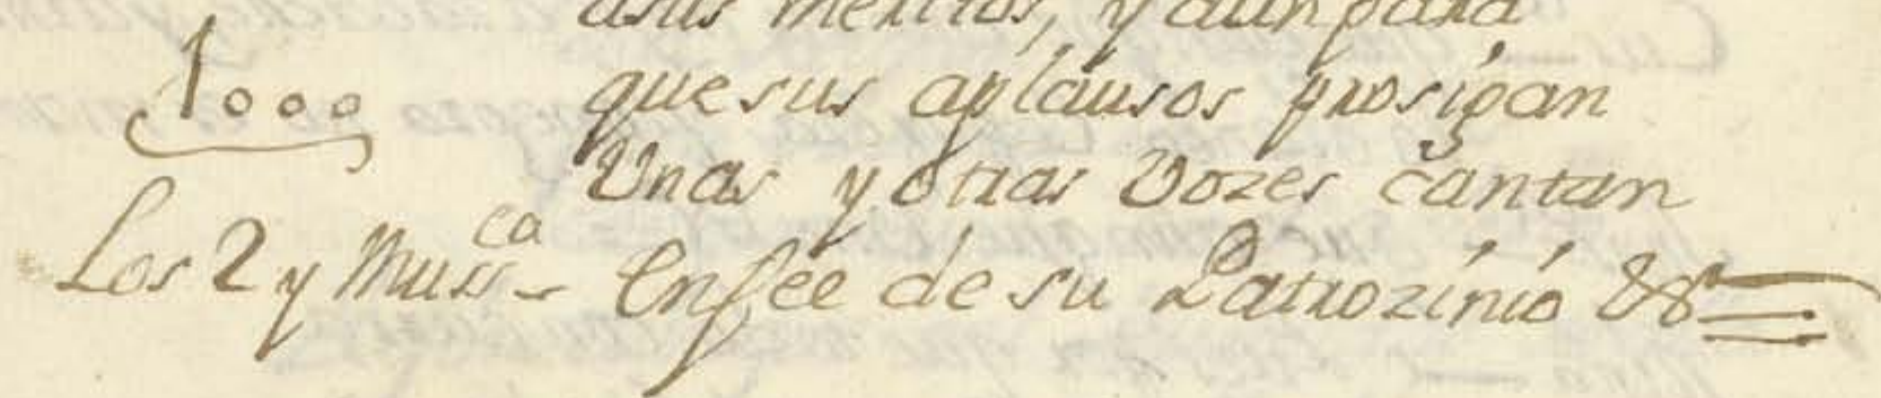 asus meritos, y aun para
1000 que sus aplausos prosigan
Unas y otras Vozes cantan
Los 2 y Muss.ca - En fee de su Patrozinio &a